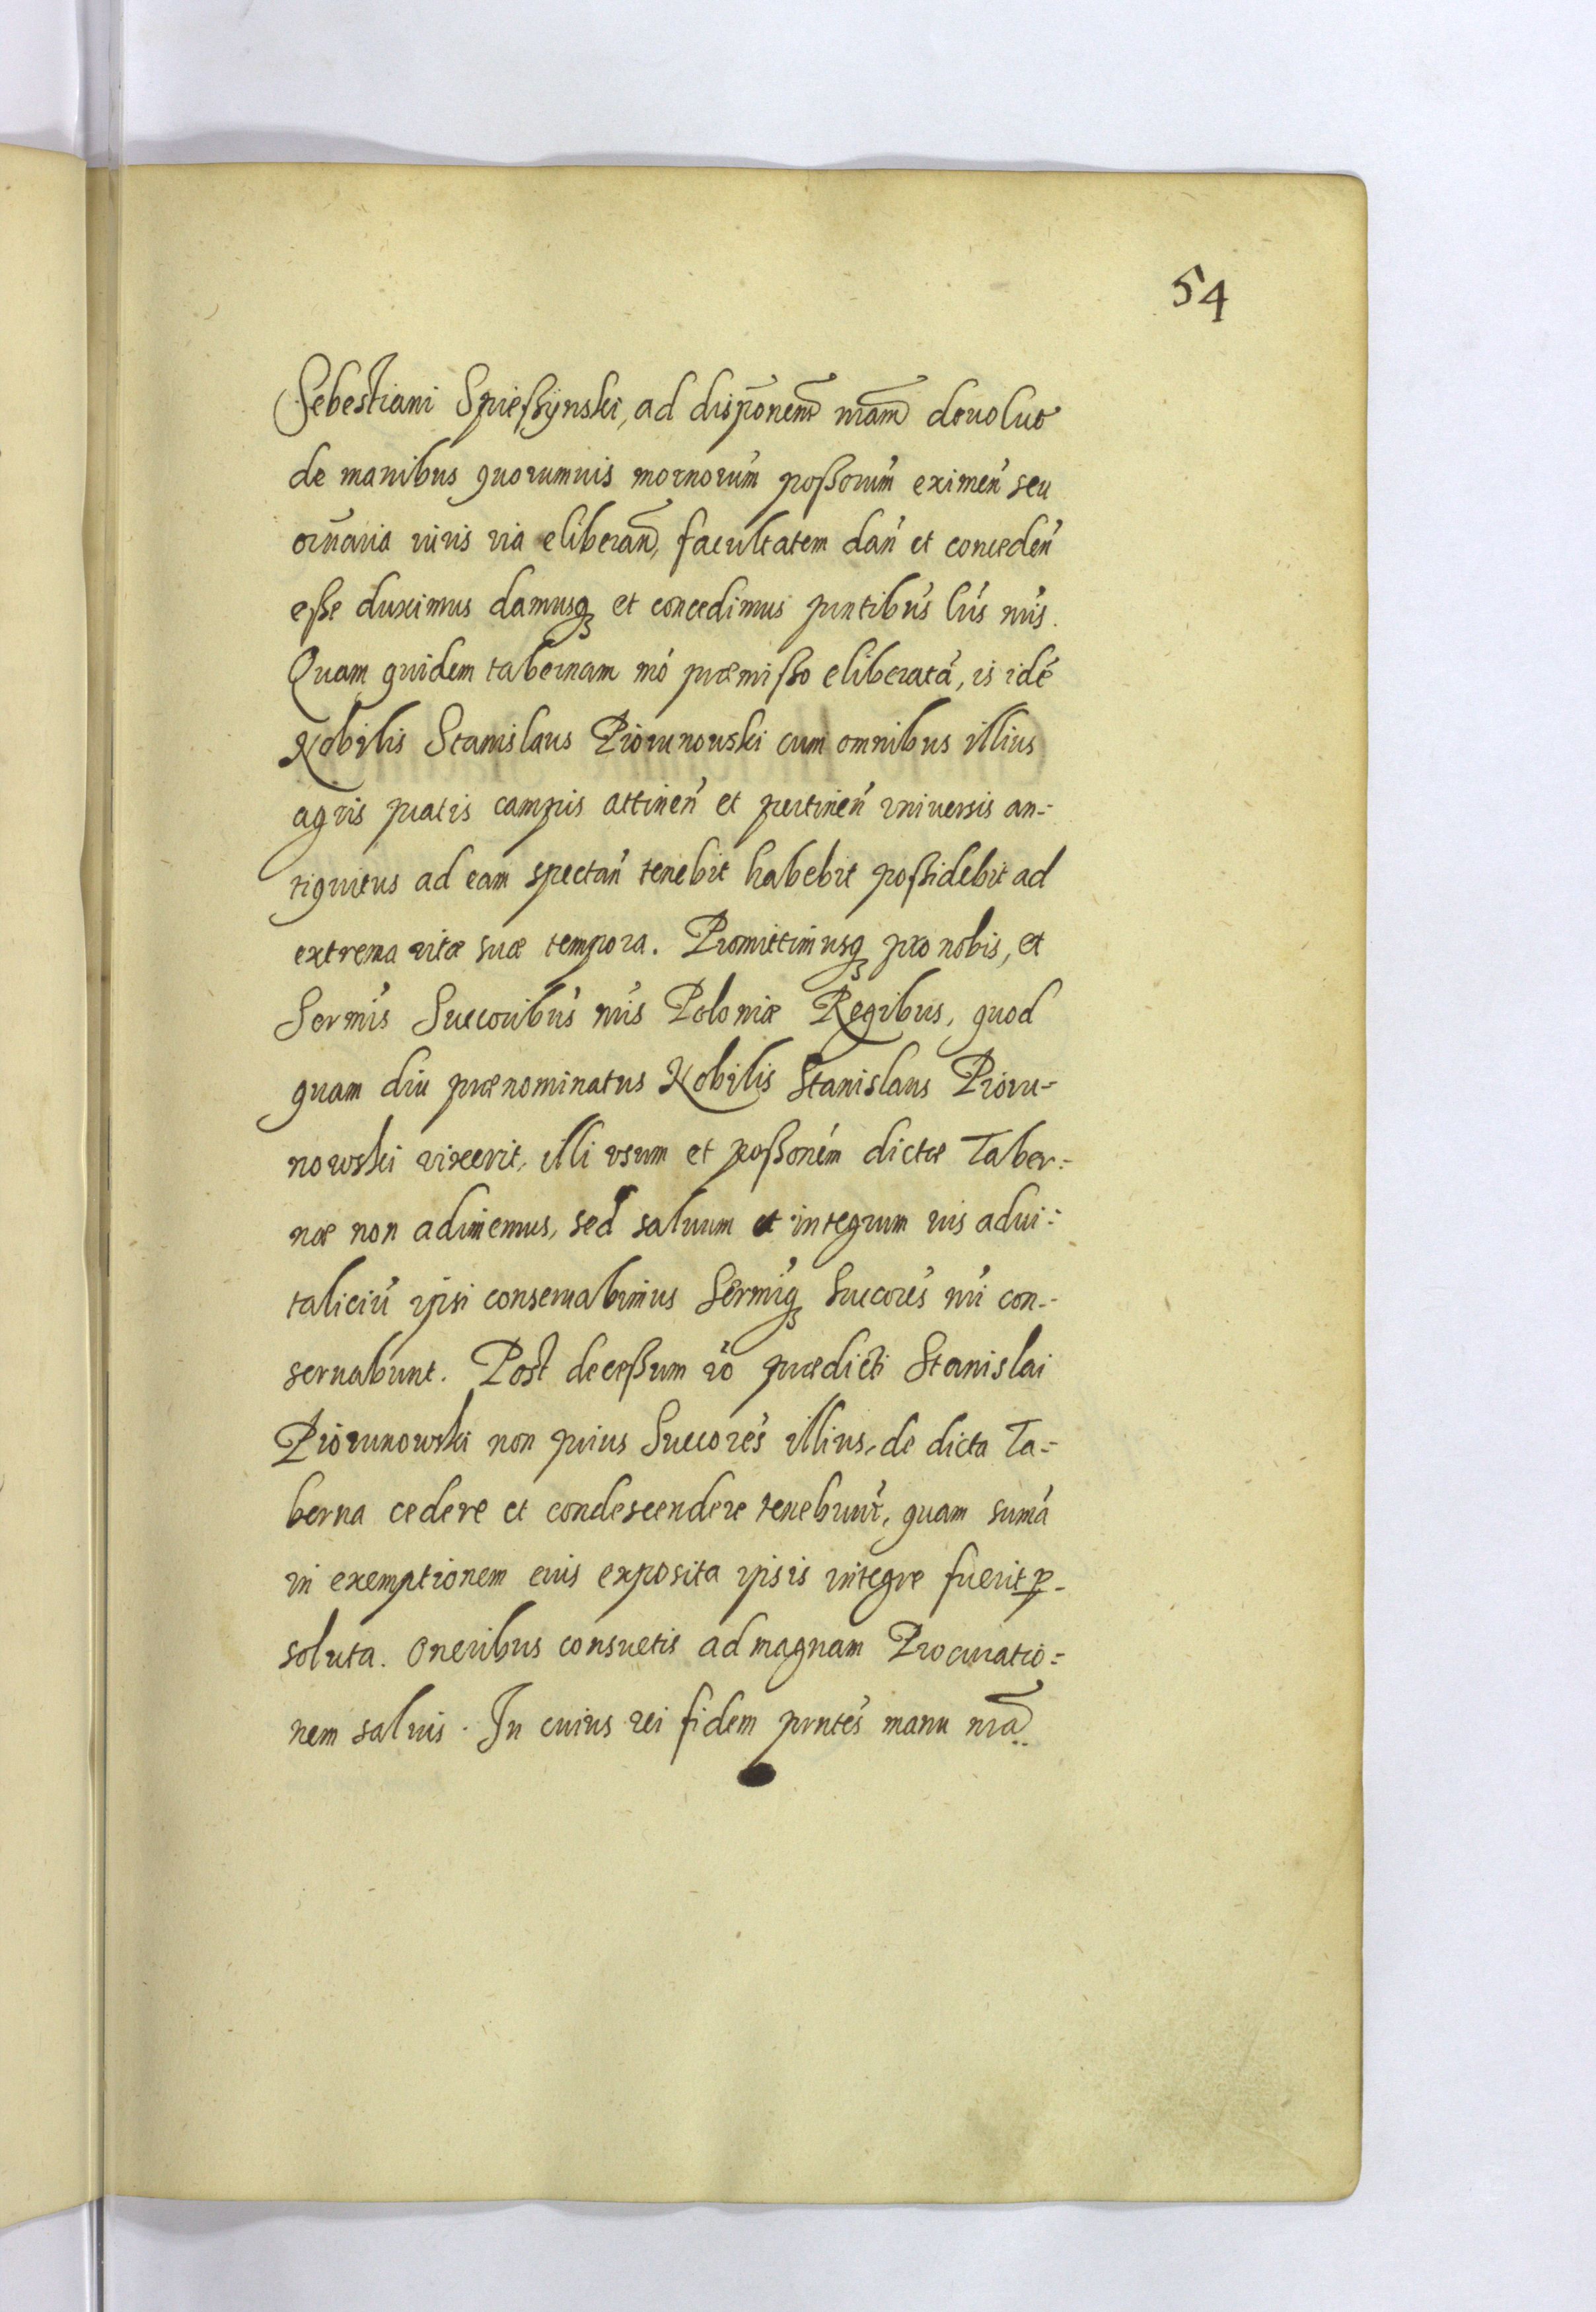 54
Sebestiani Spießÿnski, ad dispōnem̄ nram̄ deuolut
de manibus quorumuis mornorum̓ poßorum̓ eximen̓ seu
ordn̄aria iuris via eliberan̄, facultatem dan̓ et conceden̓
eße duximus damusq̨ et concedimus pn̄tibus̓ lris̓ nris̓.
Quam quidem tabernam mó præmißo eliberatā, is idē
Nobilis Stanislaus Piorunowski cum omnibus illius
agris pratis campis attinen̓ et pertinen̓ vniuersis an-
tiquitus ad eam spectan̓ tenebit habebit poßidebit ad
extrema vitæ suæ tempora. Promittimusq̨ pro nobis, et
Sermis̓ Succoribus̓ nris̓ Poloniæ Regibus, quod
quam diu prænominatus Nobilis Stanislaus Pioru-
nowski vixerit, illi vsum et poßoném dictæ Taber-
næ non adimemus, sed saluum et integrum ius adui-
taliciū ipsi conseruabimus Sermiq̨̓ Succores̓ nri̓ con-
seruabunt. Post deceßum vo̓ prædicti Stanislai
Piorunowski non prius Succores̓ illius, de dicta Ta-
berna cedere et condescendere tenebunt̓, quam sum̄a
in exemptionem eius exposita ipsis integre fuerit ꝑ-
soluta. Oneribus consuetis ad magnam Procuratio-
nem saluis. In cuius rei fidem prntes̓ manu nra̅